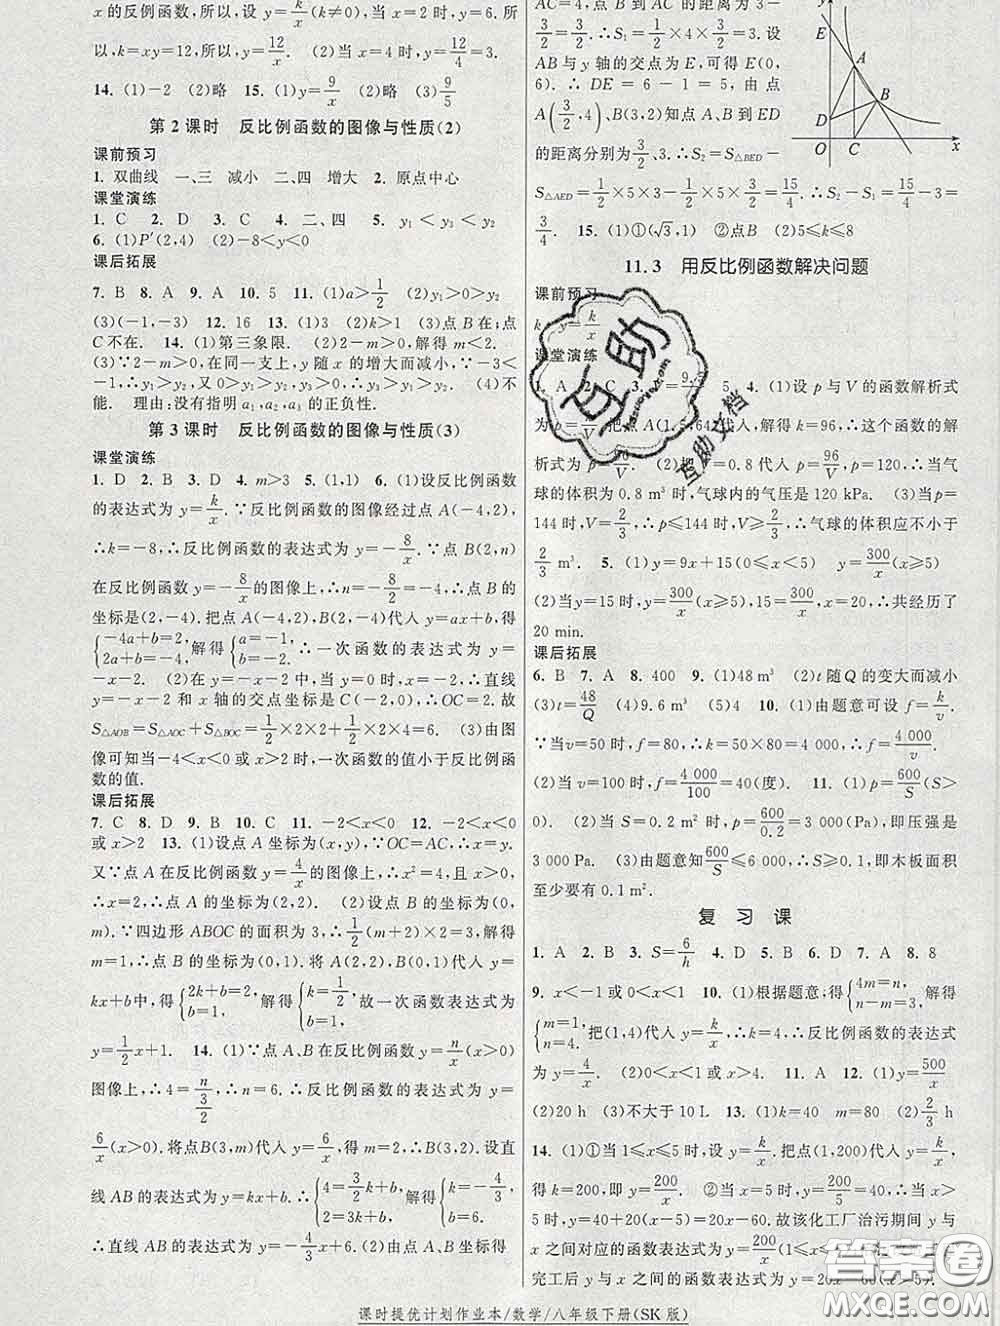 的反比例函数,所以,设 y=k/x(k≠0),当 x=2 时,y=6.所
以,k=xy=12,所以,y=12/x. (2)当 x=4 时,y=12/4=3.
14. (1)-2 (2)略 15. (1)y=9/x (2)略 (3)9/5
第 2 课时 反比例函数的图像与性质(2)
课前预习
1. 双曲线 一、三 减小 二、四 增大 2. 原点中心
课堂演练
1. C 2. D 3. C 4. 二、四 5. y₁<y₃<y₂
6. (1)P′(2,4) (2)-8<y<0
课后拓展
7. B 8. A 9. A 10. 5 11. (1)a>1/2 (2)>0 >0
(3)(-1,-3) 12. 16 13. (1)3 (2)k>1 (3)点B在;点
C不在. 14. (1)第三象限. (2)2-m>0,解得 m<2.
(3)∵2-m>0,在同一支上,y 随 x 的增大而减小,-3<-
1,∴y₁>y₂,又 0>y₁>y₂,y₃>0,∴y₃>y₁>y₂. (4)不
能. 理由:没有指明 a₁,a₂,a₃ 的正负性.
第 3 课时 反比例函数的图像与性质(3)
课堂演练
1. D 2. B 3. D 4. m>3 5. (1,1) 6. (1)设反比例函数
的表达式为 y=k/x.∵反比例函数的图像经过点 A(-4,2),
∴k=-8,∴反比例函数的表达式为 y=-8/x.∵点 B(2,n)
在反比例函数 y=-8/x的图像上,∴n=-8/2=-4,∴点 B 的
坐标是(2,-4).把点 A(-4,2),B(2,-4)代入 y=ax+b,得
{-4a+b=2, 2a+b=-4,解得{a=-1, b=-2.∴一次函数的表达式为 y=
-x-2. (2)在 y=-x-2 中,当 y=0 时,x=-2,∴直线
y=-x-2 和 x 轴的交点坐标是 C(-2,0),∴OC=2.故
S△AOB=S△AOC+S△BOC=1/2×2×2+1/2×2×4=6. (3)由图
像可知当-4<x<0 或 x>2 时,一次函数的值小于反比例函
数的值.
课后拓展
7. C 8. D 9. B 10. C 11. -2<x<0 12. -2<x<0
或 x>2 13. (1)设点 A 坐标为(x,y),∵OC=AC,∴x=y.
又∵点 A 在反比例函数 y=4/x的图像上,∴x²=4,∵x>0,
∴x=2,∴点 A 的坐标为(2,2). (2)设点 B 坐标为(0,m),
∵四边形 ABOC 的面积为 3,∴1/2(m+2)×2=3,解得
m=1,∴点 B 的坐标为(0,1).将 A(2,2),B(0,1)代入 y=
kx+b中,得{2k+b=2, b=1,解得{k=1/2, b=1,故一次函数表达式为
y=1/2x+1. 14. (1)∵点 A、B 在反比例函数 y=n/x(x>0)
图像上,∴4=n/(3/2),∴n=6.∴反比例函数的表达式为 y=
6/x(x>0).将点B(3,m)代入 y=6/x,得 m=2,∴B(3,2).设直
线 AB 的表达式为 y=kx+b,∴{4=3/2k+b, 2=3k+b,解得{k=-4/3, b=6.
∴直线 AB 的表达式为 y=-4/3x+6.(2)由点 A、B 坐标得
AC=4,点 B 到 AC 的距离为 3-
3/2=3/2.∴S₁=1/2×4×3/2=3.设
AB与 y 轴的交点为 E,可得 E(0,
6).∴DE=6-1=5,由点
A(3/2,4)、B(3,2)知点A、B到ED
的距离分别为3/2、3.∴S₂=S△BED-
S△AED=1/2×5×3-1/2×5×3/2=15/4,∴S₂-S₁=15/4-3=
3/4. 15. (1)①(√3,1) ②点B (2)5≤k≤8
y
E
A
B
D
O C x
11.3 用反比例函数解决问题
课前预习
k y=k/x
课堂演练
1. A 2. C 5. 4. (1)设 p 与 V 的函数解析式
为 p= 把点 A(1.5,64)代入,解得 k=96,∴这个函数的解
析式为 p=96/V. (2)把 =0.8 代入 p=96/V,p=120,∴当气
球的体积为 0.8 m³ 时,气球内的气压是 120 kPa. (3)当 p=
144 时,V=2/3,∴p≤144 时,V≥2/3,∴气球的体积应不小于
2/3 m³. 5. (1)y=9x+15(0≤x<5) y=300/x(x≥5)
(2)当 y=15 时,y=300/x(x≥5)=15,x=20,∴共经历了
20 min.
课后拓展
6. B 7. A 8. 400 9. (1)48 m³ (2)t 随Q 的变大而减小
(3)t=48/Q (4)9.6 m³ (5)4 10. (1)由题意可设 f=k/v.
∵当v=50 时,f=80,∴k=50×80=4 000,∴f=4 000/v.
(2)当 v=100 时,f=4 000/100=40(度). 11. (1)p=600/S(S>
0). (2)当 S=0.2 m² 时,p=600/0.2=3 000(Pa),即压强是
3 000 Pa. (3)由题意知600/S≤6 000,∴S≥0.1,即木板面积
至少要有 0.1 m².
复 习 课
1. A 2. B 3. S=6/h 4. D 5. B 6. D 7. A 8. 8
9. x<-1 或0<x<1 10. (1)根据题意,得{4m=n, n-m=3,解得
{m=1, n=4.把(1,4)代入 y=k/x,∴k=4,∴反比例函数的表达式
为 y=4/x. (2)0<x<1 或 x>4. 11. A 12. (1)y=500/x
(2)20 h (3)不大于 10 L 13. (1)k=40 m=80 (2)2/3 h
14. (1)①当 1≤x≤5 时,设 y=k/x.把点(1,200)代入,
得 k=200,即 y=200/x. ②当 x=5 时,y=40,∴当 x>
5 时,y=40+20(x-5)=20x-60.故该化工厂治污期间 y 与
x 之间对应的函数表达式为 y=200/x(1≤x≤5
完工后 y 与 x 之间的函数表达式为 y=20x-60(x>5).
互助
互助文档
答案圈
课时提优计划作业本/数学/八年级下册(SK 版)